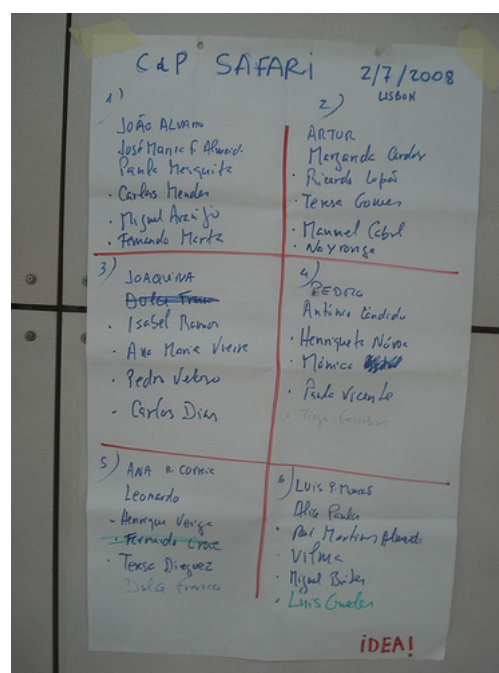 CdP SAFARi 2/7/2008
LISBON
1)
JOÃO ALVARO
José Maria F. Almeid.
Paula Mesquita
· Carlos Mendes
· Miguel Araújo
· Fernando Marta
2)
ARTUR
Margarida Cardos
· Ricardo
· Teresa Gomes
· Manuel Cabral
3)
JOAQUINA
Dulce Franco
· Isabel Ramos
· Ana Maria Vieira
· Pedro Veloso
· Carlos Dias
4)
PEDRO
António Cândido
· Henriqueta
· Mónica
· Paula Vicente
· Tiago
5) ANA R CORREIA
Leonardo
- Henrique Veiga
· Fernando Cruz
· Teresa Dieguez
Dulce Franco
6) LUIS P.
Alice Paula
· Rui Martins Almeida
· Vilma
· Miguel
· Luis Guedes
iDEA!